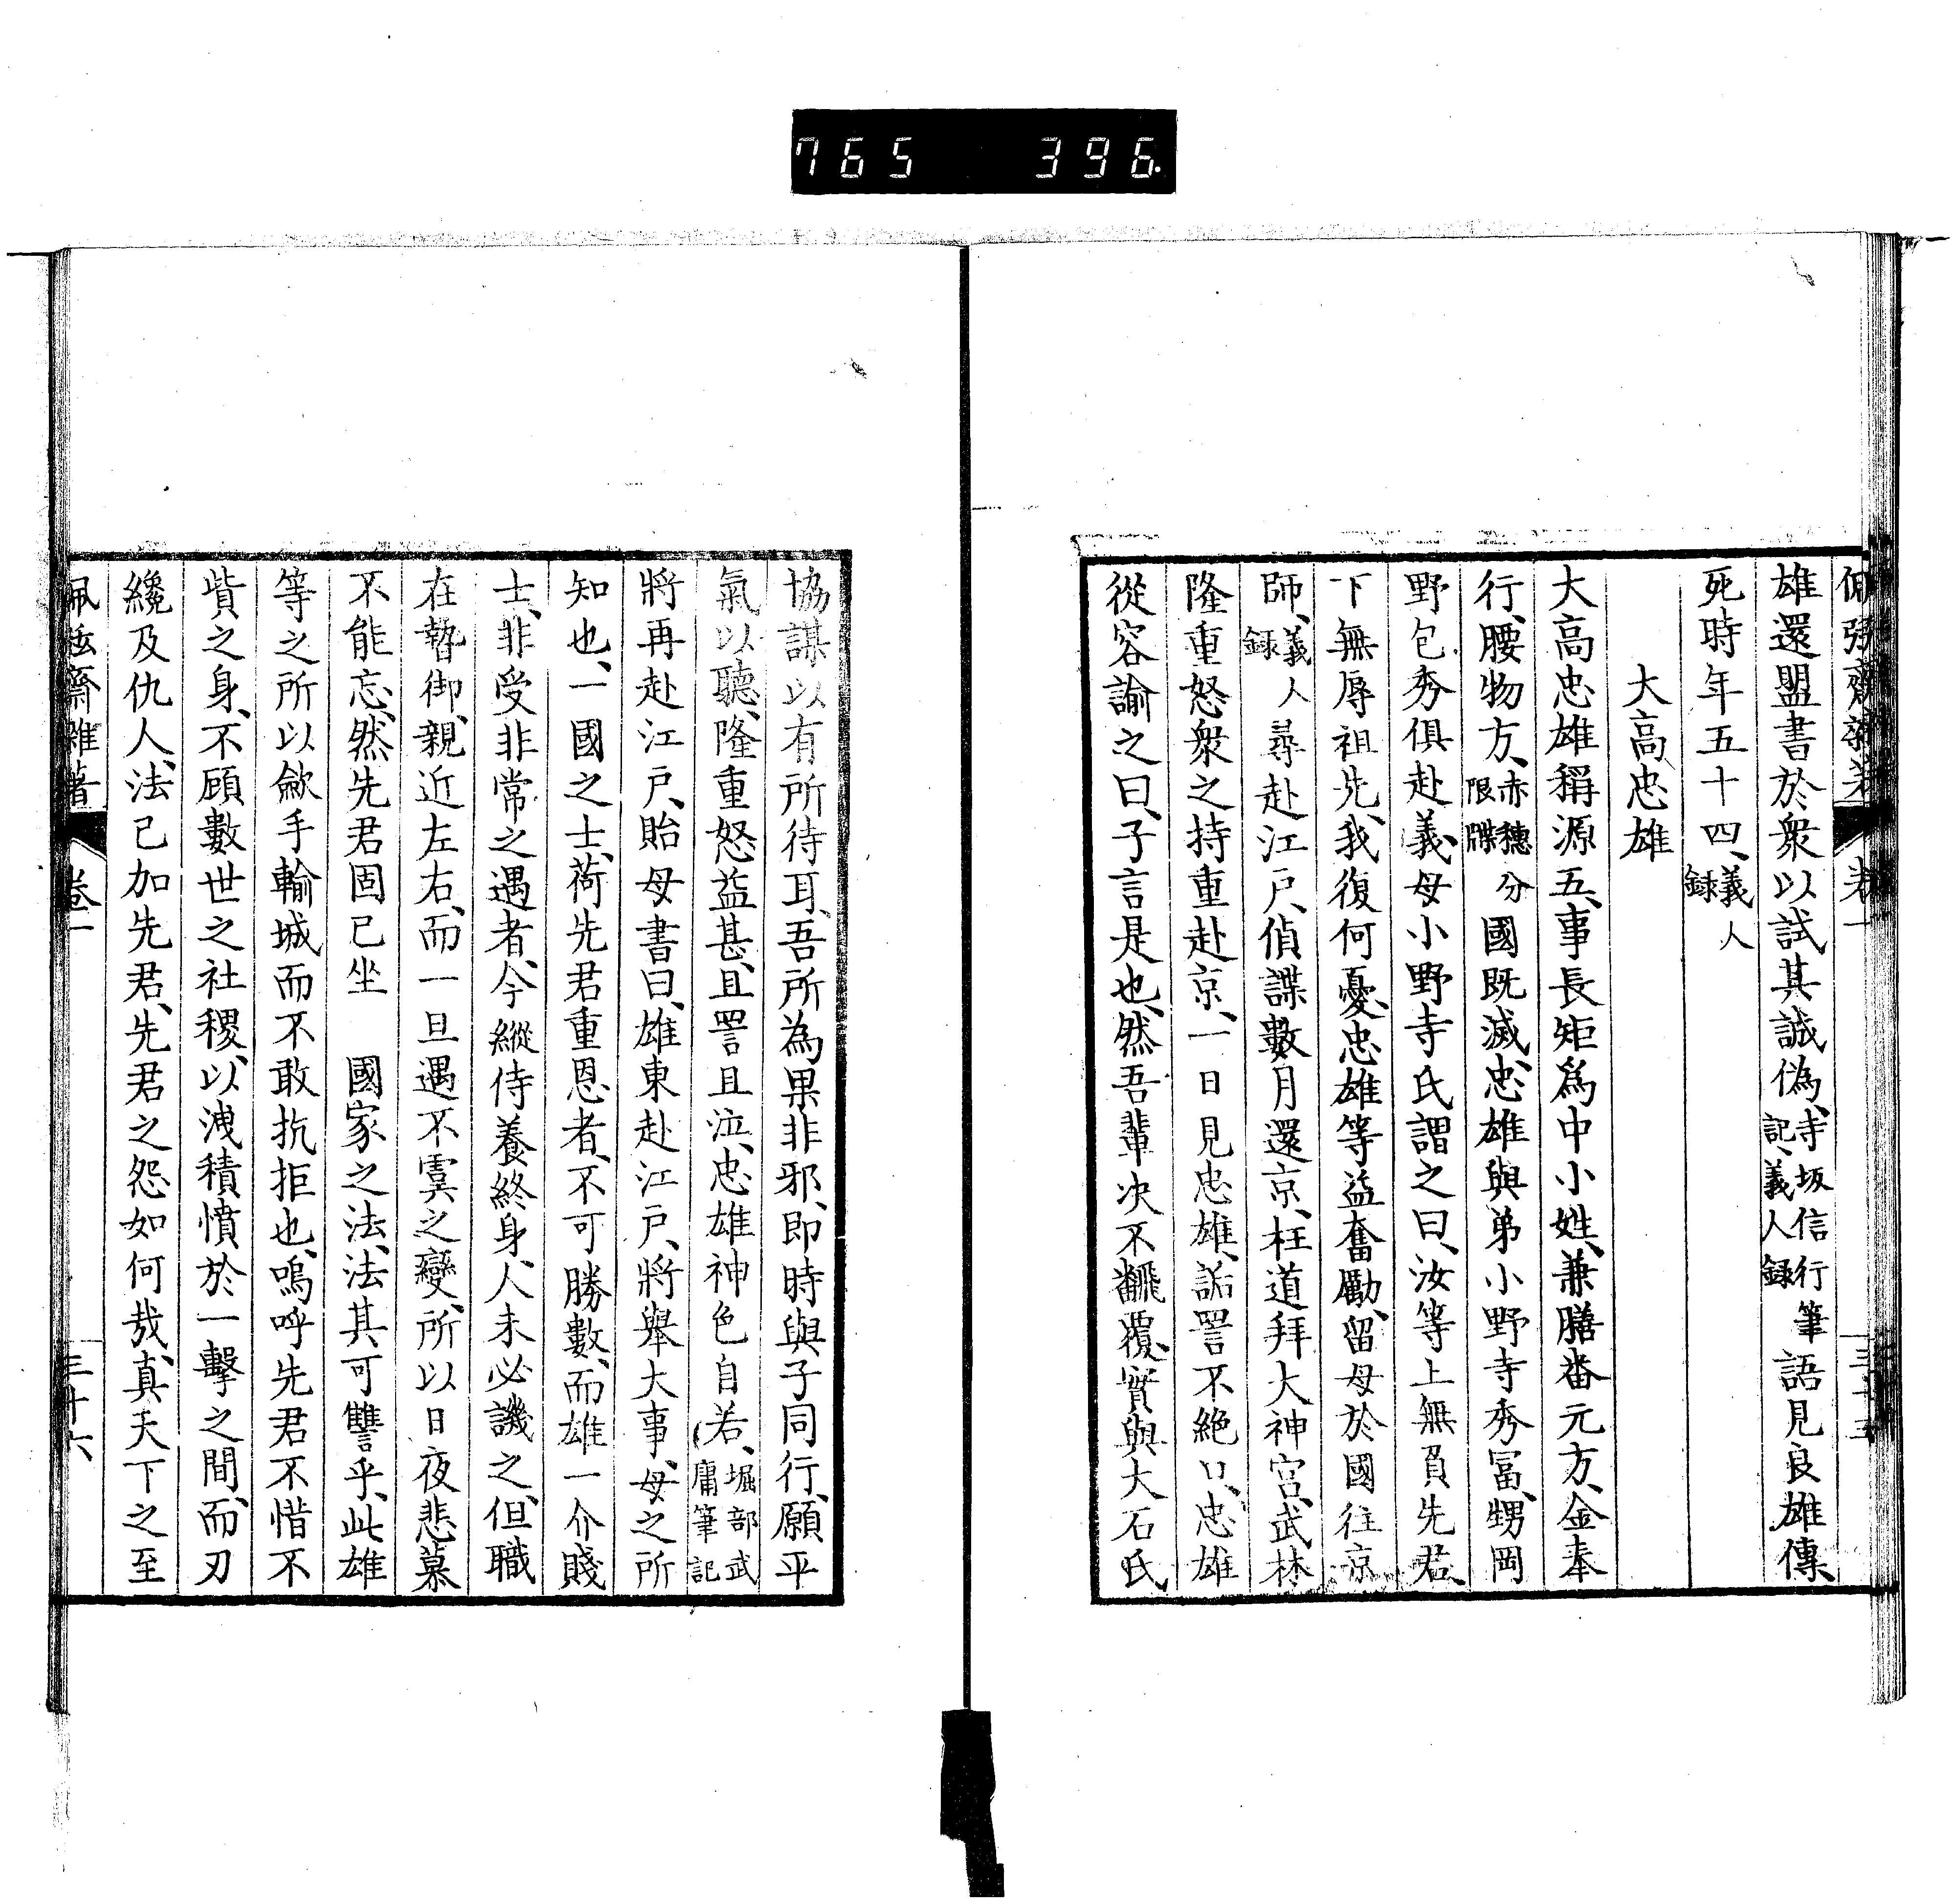 765 396.
雄還盟書於衆以試其誠偽、寺坂信行筆記、義人録語見良雄傳、
死時年五十四、義人録
大高忠雄
大高忠雄稱源五、事長矩爲中小姓、兼膳番元方、金奉
行、腰物方、赤穗分限牒國既滅、忠雄與弟小野寺秀冨、甥岡
野包秀俱赴義、母小野寺氏謂之曰、汝等上無負先君、
下無辱祖先、我復何憂、忠雄等益奮勵、留母於國往京
師、義人録尋赴江戸、偵諜數月還京、枉道拜大神宮、武林
隆重怒衆之持重赴京、一日見忠雄、詬詈不絶口、忠雄
從容諭之曰、子言是也、然吾輩决不飜覆、實與大石氏
協謀以有所待耳、吾所為果非邪、即時與子同行、願平
氣以聽、隆重怒益甚、且詈且泣、忠雄神色自若、堀部武庸筆記
將再赴江戸、貽母書曰、雄東赴江戸、將舉大事、母之所
知也、一國之士、荷先君重恩者、不可勝數、而雄一介賤
士、非受非常之遇者、今縱侍養終身、人未必譏之、但職
在暬御、親近左右、而一旦遇不虞之變、所以日夜悲慕
不能忘、然先君固已坐 國家之法、法其可讐乎、此雄
等之所以歛手輸城而不敢抗拒也、嗚呼先君不惜不
貲之身、不顧數世之社稷、以洩積憤於一擊之間、而刃
纔及仇人、法已加先君、先君之怨如何哉、真天下之至
齋雜著 卷一 三十六